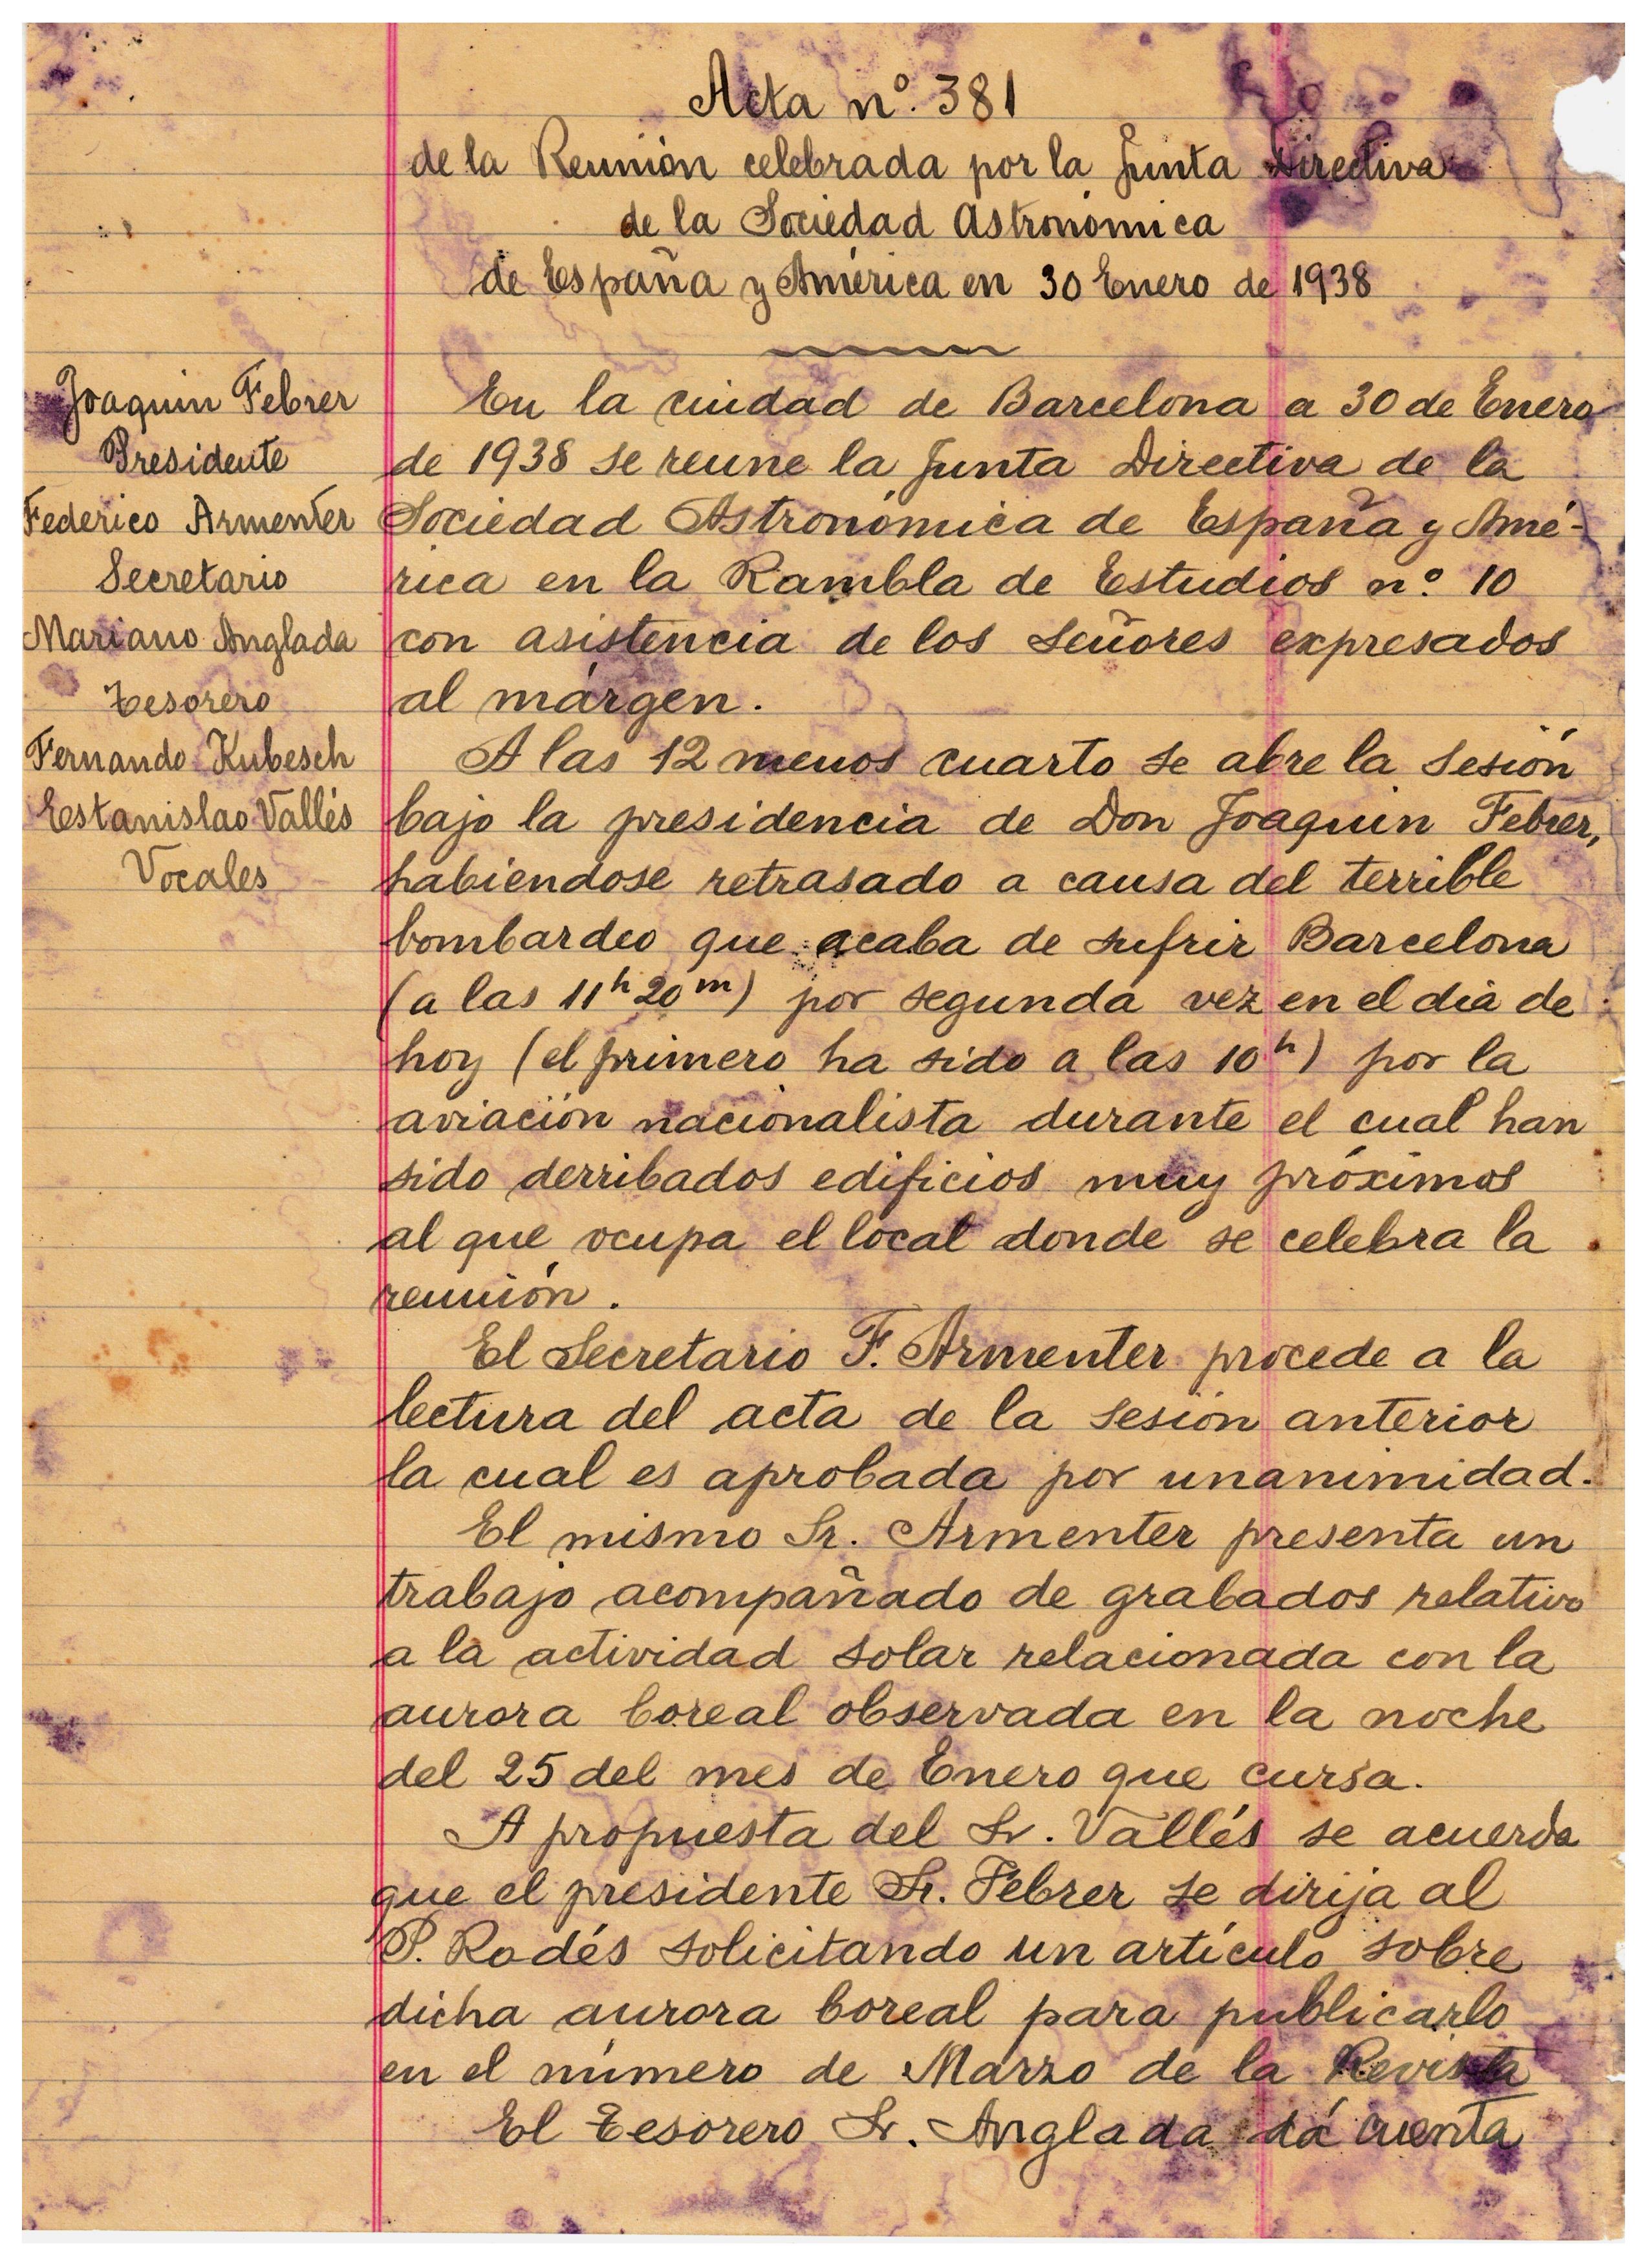 Acta nº. 381
de la Reunión celebrada por la Junta Directiva
de la Sociedad Astronómica
de España y América en 30 Enero de 1938
Joaquin Febrer
Presidente
Federico Armenter
Secretario
Mariano Anglada
Tesorero
Fernando Kubesch
Estanislao Vallés
Vocales
En la ciudad de Barcelona a 30 de Enero
de 1938 se reune la Junta Directiva de la
Sociedad Astronómica de España y Amé-
rica en la Rambla de Estudios nº 10
con asistencia de los señores expresados
al márgen.
A las 12 menos cuarto se abre la sesión
bajo la presidencia de Don Joaquin Febrer,
habiendose retrasado a causa del terrible
bombardeo que acaba de sufrir Barcelona
(a las 11h 20m) por segunda vez en el dia de
hoy (el primero ha sido a las 10h) por la
aviación nacionalista durante el cual han
sido derribados edificios muy próximos
al que ocupa el local donde se celebra la
reunión.
El Secretario F. Armenter procede a la
lectura del acta de la sesión anterior
la cual es aprobada por unanimidad.
El mismo Sr. Armenter presenta un
trabajo acompañado de grabados relativo
a la actividad solar relacionada con la
aurora boreal observada en la noche
del 25 del mes de Enero que cursa.
A propuesta del Sr. Vallés se acuerda
que el presidente Sr. Febrer se dirija al
P. Rodés solicitando un artículo sobre
dicha aurora boreal para publicarlo
en el número de Marzo de la Revista
El Tesorero Sr. Anglada dá cuenta